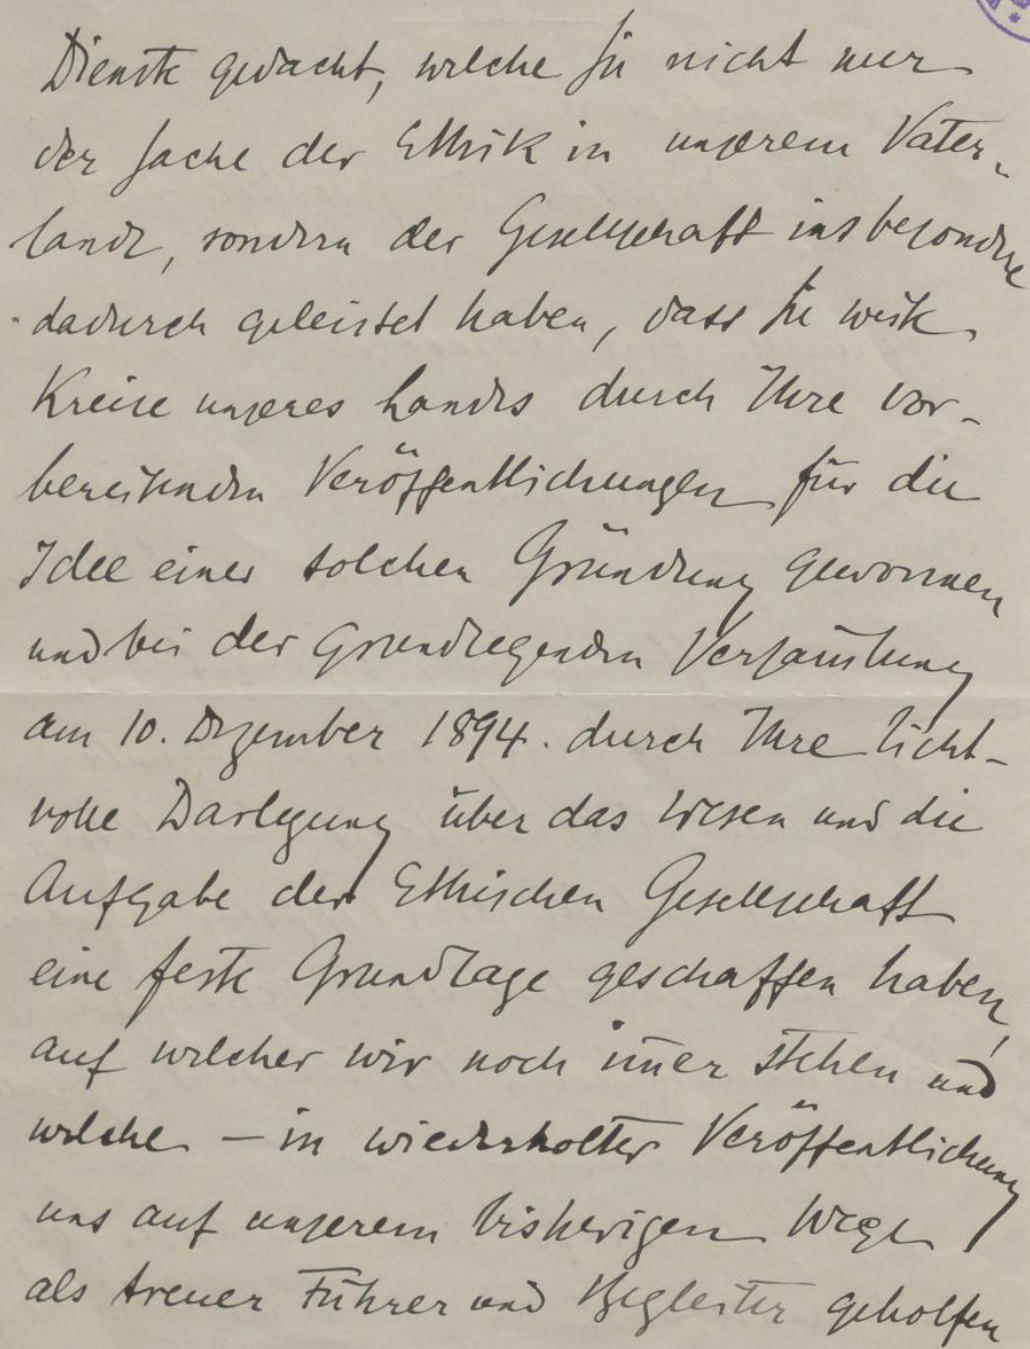 Dienste gedacht, welche Sie nicht nur
der Sache der Ethik in unserem Vater-
lande, sondern der Gesellschaft insbesondre
dadurch geleistet haben, dass Sie weite
Kreise unseres Landes durch Ihre vor-
bereitenden Veröffentlichungen für die
Idee einer solchen Gründung gewonnen
und bei der grundlegenden Versam̅lung
am 10. Dezember 1894. durch Ihre licht-
volle Darlegung über das Wesen und die
Aufgabe der Ethischen Gesellschaft
eine feste Grundlage geschaffen haben,
auf welcher wir noch im̅er stehen und
welche – in wiederholter Veröffentlichung
uns auf unserem bisherigen Wege
als treuer Führer und Begleiter geholfen